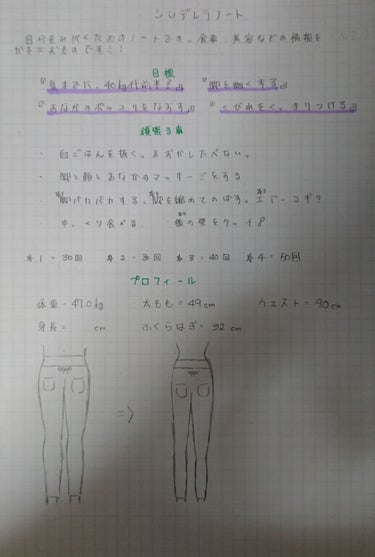 シンデレラノート
自分をみがくためのノートです。食事、美容などの情報を
かきこむものです！！
目標
『夏までに、40kg代前半！』 『脚を細くする』
『おなかのポッコリをなおす』 『くびれをく、きりつける』
頑張る事
・白ごはんを抜く。おかしたべない。
・脚と顔とおなかのマッサージをする
脚パカパカする、脚を縮めてのばす。エアーコギ
ゆっくり食べる 横の壁をタッチ
※1＝30回 ※2＝30回 ※3＝40回 ※4＝50回
プロフィール
体重＝47.0kg 太もも＝49cm ウエスト＝90cm
身長＝ cm ふくらはぎ＝32cm
⇒